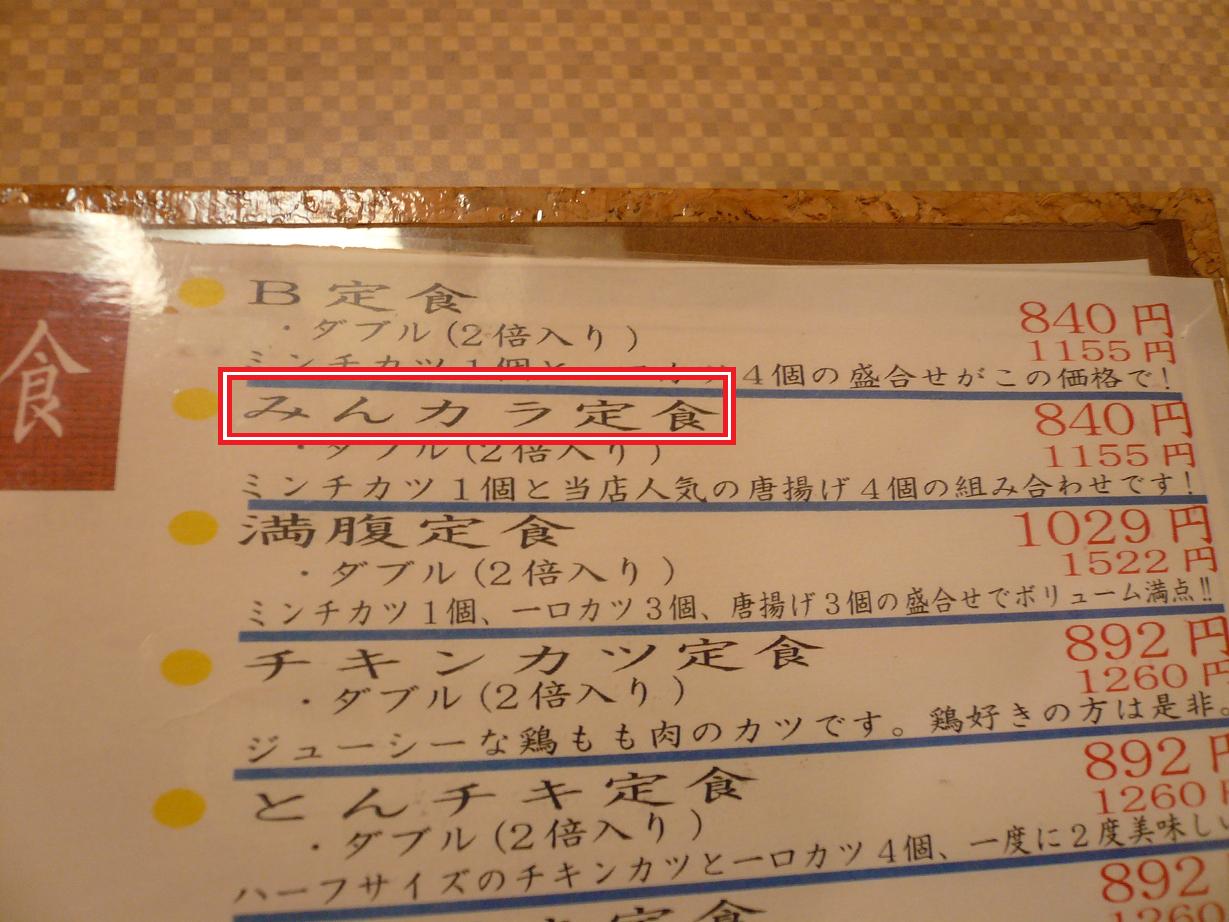 食
B定食
840円
・ダブル(2倍入り)
1155円
ミンチカツ1個と一口カツ4個の盛合せがこの価格で!
みんカラ定食
840円
・ダブル(2倍入り)
1155円
ミンチカツ1個と当店人気の唐揚げ4個の組み合わせです!
満腹定食
1029円
・ダブル(2倍入り)
1522円
ミンチカツ1個、一口カツ3個、唐揚げ3個の盛合せでボリューム満点!!
チキンカツ定食
892円
・ダブル(2倍入り)
1260円
ジューシーな鶏もも肉のカツです。鶏好きの方は是非。
とんチキ定食
892円
・ダブル(2倍入り)
1260円
ハーフサイズのチキンカツと一口カツ4個、一度に2度美味しい
892
定食
1260